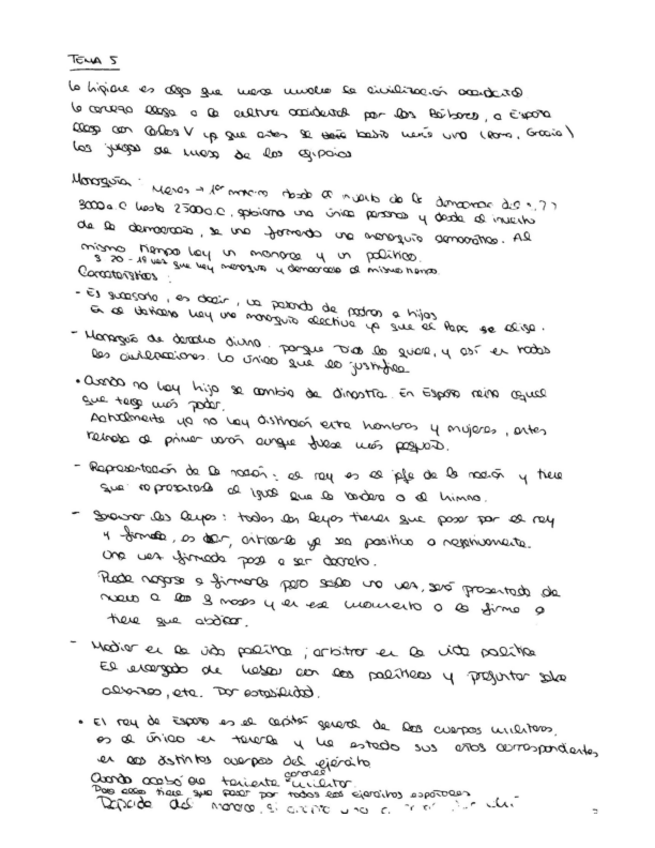 TEMA 5
La higiene es algo que marca mucho la civilización occidental
la cerveza llega a la cultura occidental por los Bárbaros, a España
llega con Carlos V ya que antes se había bebido vino (Roma, Grecia)
Los juegos de mesa de los egipcios
Monarquía: Menes → 1er monarca desde el invento de la democracia
3000 a.C hasta 2500 a.C, gobierna una única persona y desde el invento
de la democracia, se va formando una monarquía democrática. Al
mismo tiempo hay un monarca y un político.
S 20-19 vez que hay monarquía y democracia al mismo tiempo.
Características:
- Es sucesoria, es decir, va pasando de padres a hijos
En el Vaticano hay una monarquía electiva ya que el Papa se elige.
- Monarquía de derecho divino: porque Dios lo quiere, y así en todas
las civilizaciones. Lo único que lo justifica
• Cuando no hay hijo se cambia de dinastía. En España reina aquel
que tenga más poder.
Actualmente ya no hay distinción entre hombres y mujeres, antes
reinaba el primer varón aunque fuese más pequeño.
- Representación de la nación: el rey es el jefe de la nación y tiene
que representarla al igual que la bandera o el himno.
- Sancionar las leyes: todas las leyes tienen que pasar por el rey
y firmarla, es decir, criticarla ya sea positiva o negativamente.
Una vez firmada pasa a ser decreto.
Puede negarse a firmarla pero solo una vez, será presentada de
nuevo a los 3 meses y en ese momento o la firma o
tiene que abdicar.
- Mediar en la vida política; arbitrar en la vida política
El encargado de hablar con los políticos y preguntar sobre
alianzas, etc. Dar estabilidad.
• El rey de España es el capitán general de los cuerpos militares,
es el único en tenerla y ha estado sus años correspondientes
en los distintos cuerpos del ejército
Cuando acabó era teniente coronel militar.
Para ello tiene que pasar por todos los ejércitos españoles
del monarca, si